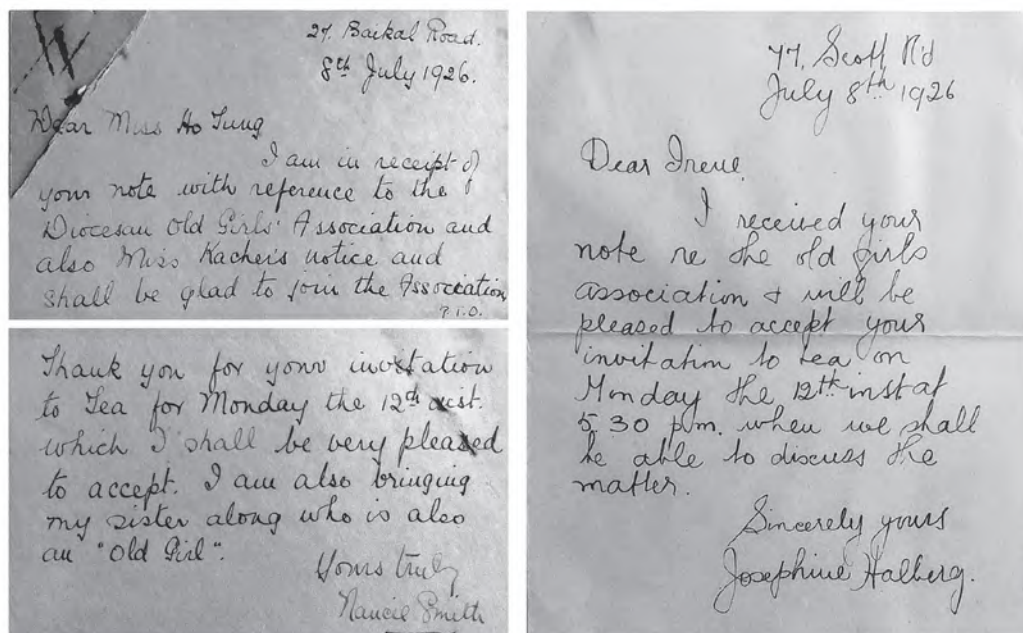 27, Baikal Road.
8th July 1926.
Dear Miss Ho Tung
I am in receipt of
your note with reference to the
Diocesan Old Girls' Association and
also Miss Kacher's notice and
shall be glad to join the Association
P.T.O.
Thank you for your invitation
to Tea for Monday the 12th inst.
which I shall be very pleased
to accept. I am also bringing
my sister along who is also
an "Old Girl".
Yours truly
Nancie Smith
77, Scott Rd
July 8th 1926
Dear Irene,
I received your
note re the old girls
association & will be
pleased to accept your
invitation to tea on
Monday the 12th inst at
5.30 p.m. when we shall
be able to discuss the
matter.
Sincerely yours
Josephine Halberg.